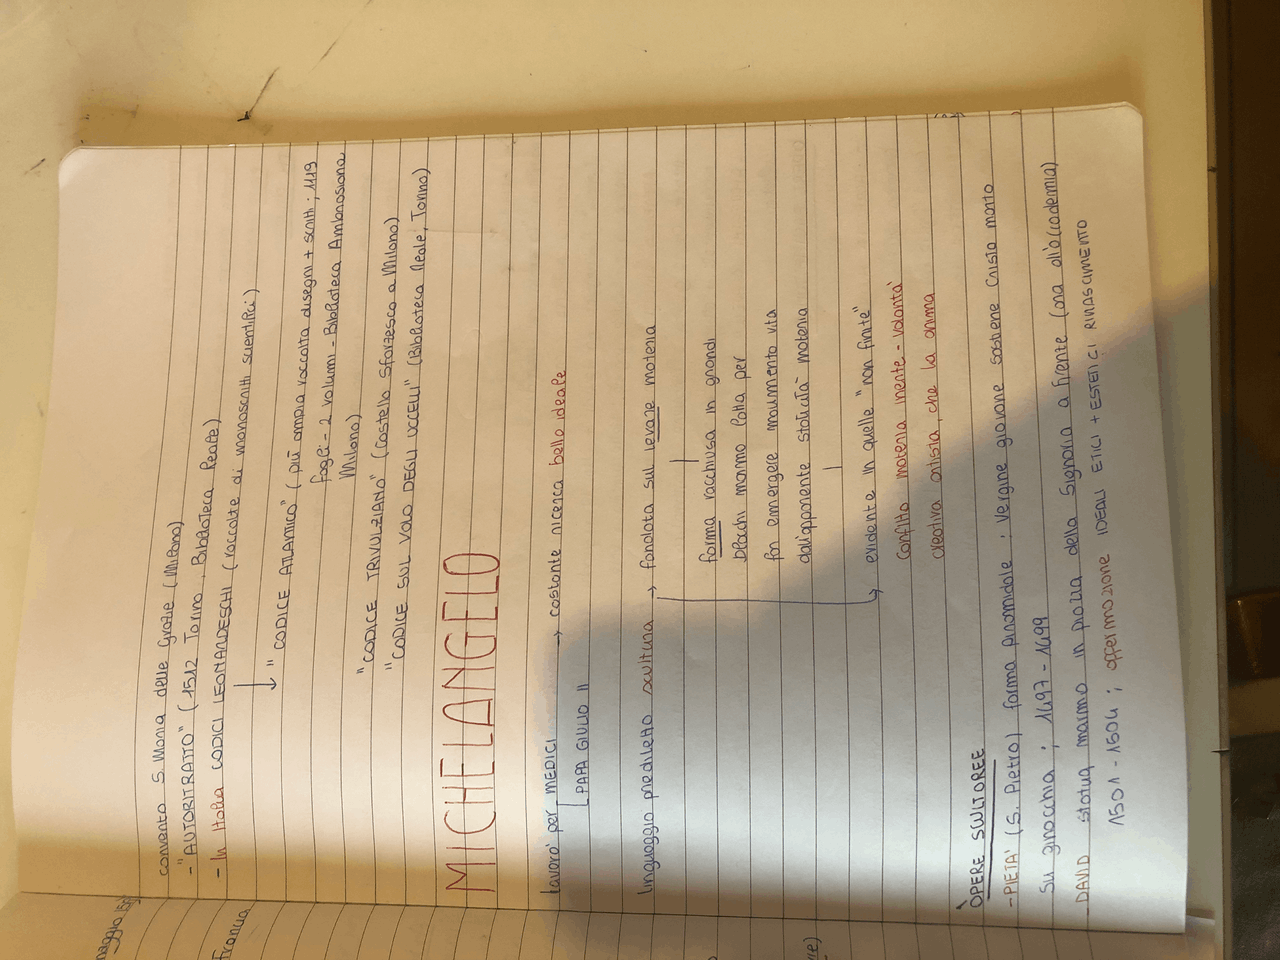 convento S. Maria delle Grazie (Milano)
- "AUTORITRATTO" (1512 Torino, Biblioteca Reale)
- In Italia CODICI LEONARDESCHI (raccolte di manoscritti scientifici)
↓ "CODICE ATLANTICO" (più ampia raccolta disegni + scritti; 1119
fogli - 2 volumi - Biblioteca Ambrosiana
Milano)
"CODICE TRIVULZIANO" (Castello Sforzesco a Milano)
"CODICE SUL VOLO DEGLI UCCELLI" (Biblioteca Reale, Torino)
MICHELANGELO
lavorò per MEDICI → costante ricerca bello ideale
PAPA GIULIO II
linguaggio prediletto scultura → fondata sul levare materia
forma racchiusa in grandi
blocchi marmo lotta per
far emergere movimento vita
dall'apparente staticità materia
evidente in quelle "non finite"
conflitto materia inerte - volontà
creativa artista, che la anima
OPERE SCULTOREE
- PIETÀ (S. Pietro) forma piramidale : Vergine giovane sostiene Cristo morto
su ginocchia ; 1497 - 1499
- DAVID statua marmo in piazza della Signoria a Firenze (ora all'accademia)
1501 - 1504 ; affermazione IDEALI ETICI + ESTETICI RINASCIMENTO
Francia